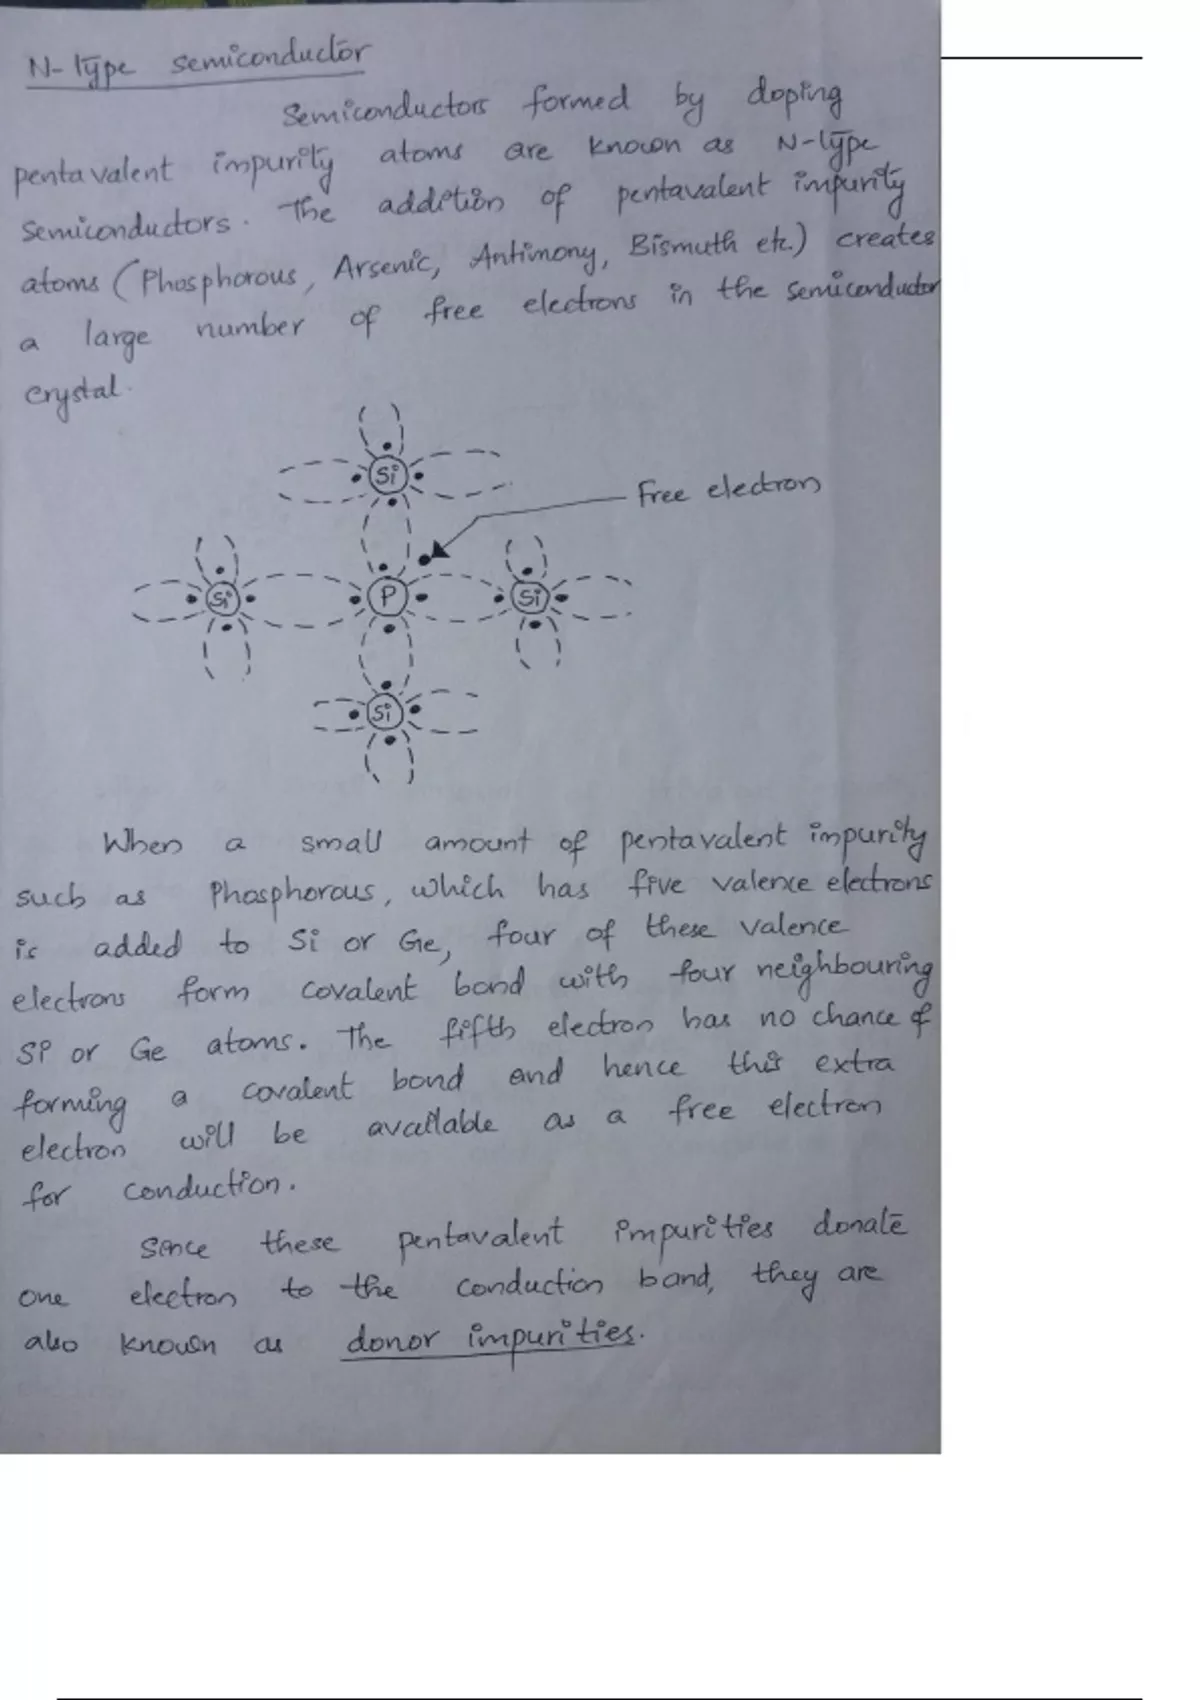 N-type semiconductor
Semiconductors formed by doping
pentavalent impurity atoms are known as N-type
semiconductors. The addition of pentavalent impurity
atoms (Phosphorous, Arsenic, Antimony, Bismuth etc.) creates
a large number of free electrons in the semiconductor
crystal.
Si
Free electron
Si P Si
Si
When a small amount of pentavalent impurity
such as Phosphorous, which has five valence electrons
is added to Si or Ge, four of these valence
electrons form covalent bond with four neighbouring
Si or Ge atoms. The fifth electron has no chance of
forming a covalent bond and hence this extra
electron will be available as a free electron
for conduction.
Since these pentavalent impurities donate
one electron to the conduction band, they are
also known as donor impurities.